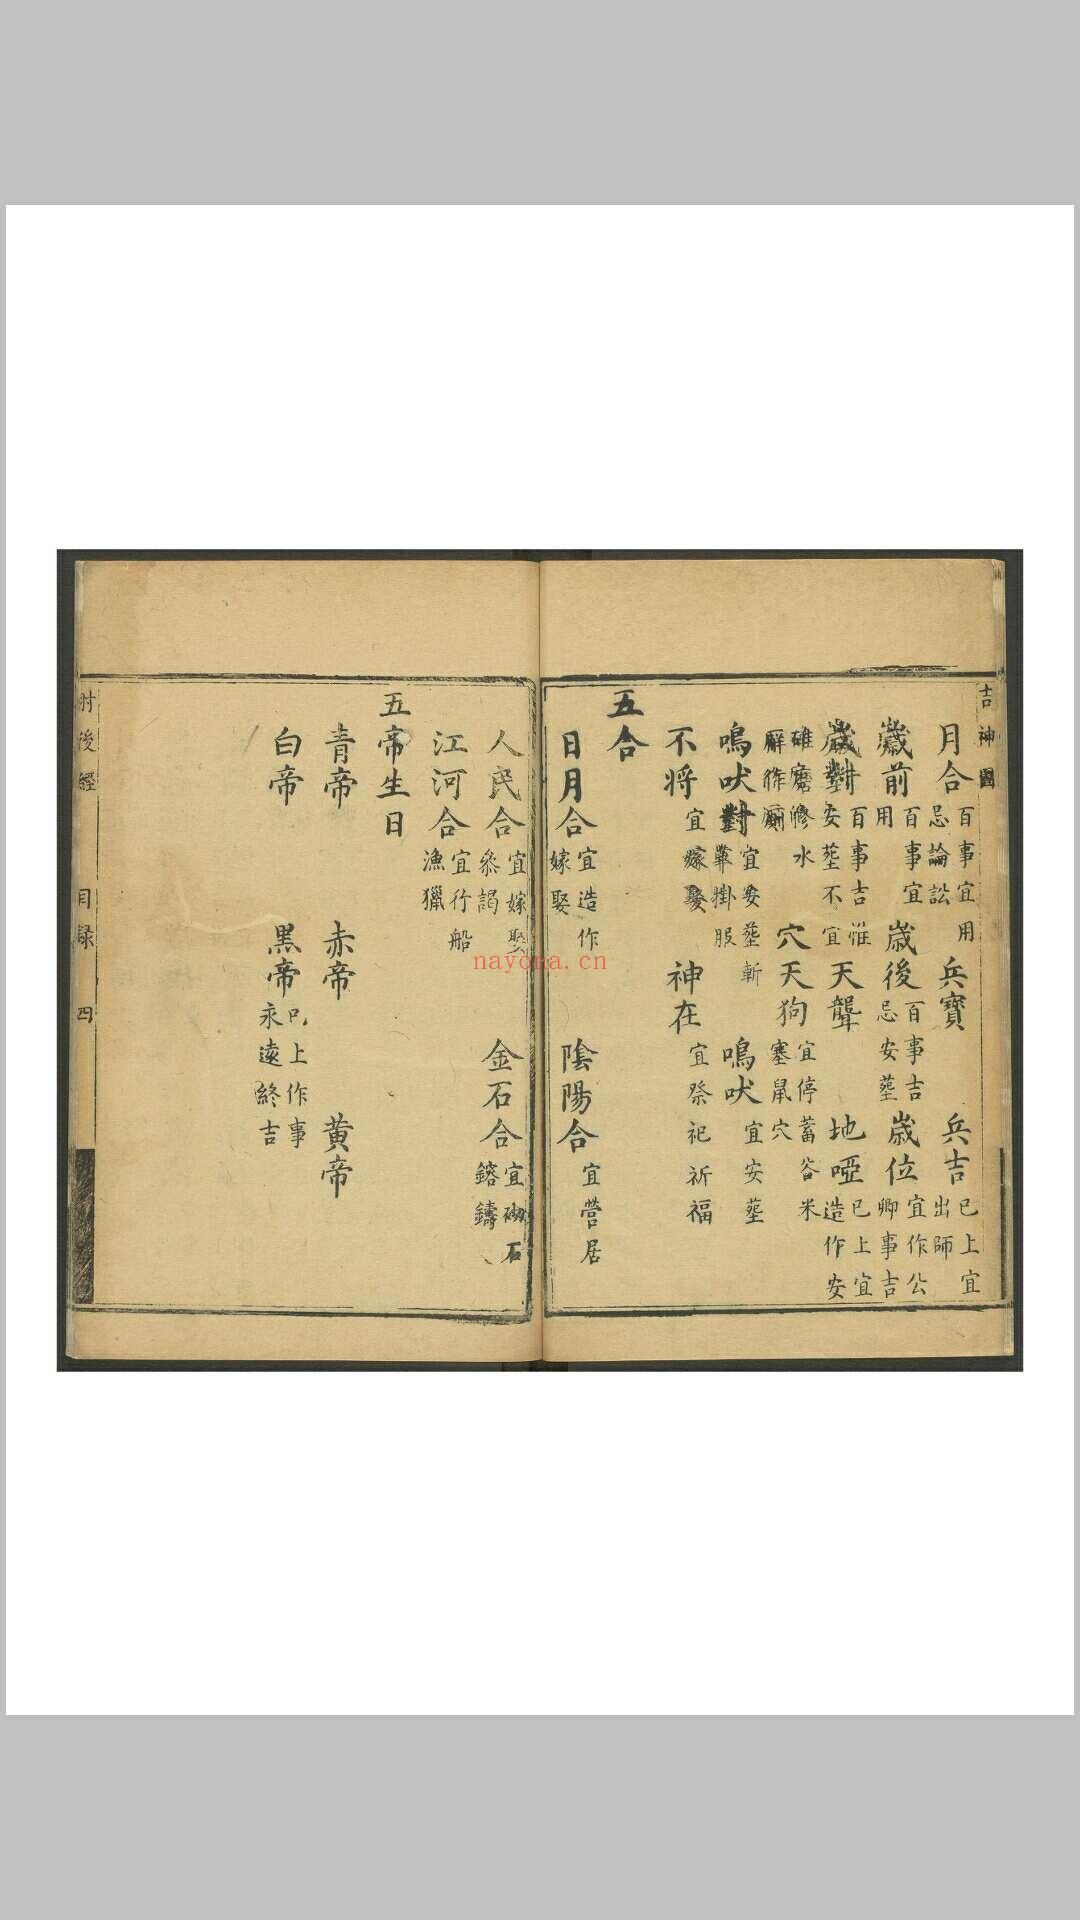 吉神圖
月合 百事宜用忌論訟 兵寶 兵吉 已上宜出師
歲前 百事宜用 歲後 百事吉忌安塟 歲位 宜作公卿事吉
歲對 百事吉惟安塟不宜 天聾 地啞 已上宜造作安
碓磨修水 穴天狗 宜停蓄谷米塞鼠穴
鳴吠對 宜安塟斬 掛服 鳴吠 宜安塟
不将 宜嫁娶 神在 宜祭祀祈福
五合
日月合 宜造作嫁娶 陰陽合 宜營居
人民合 宜嫁娶叅謁 金石合 宜砌石鎔鑄
江河合 宜行船漁獵
五帝生日
青帝 赤帝 黄帝
白帝 黑帝 已上作事永遠終吉
肘後經 目録 四
nayona.cn